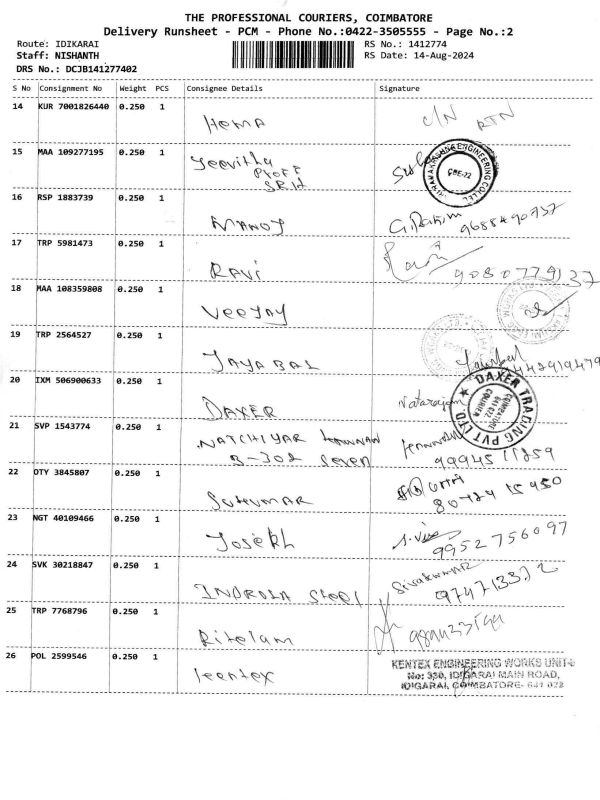 THE PROFESSIONAL COURIERS, COIMBATORE
Delivery Runsheet - PCM - Phone No.:0422-3505555 - Page No.:2
Route: IDIKARAI
RS No.: 1412774
Staff: NISHANTH
RS Date: 14-Aug-2024
DRS No.: DCJB141277402
S No Consignment No Weight PCS Consignee Details Signature
14 KUR 7001826440 0.250 1
Hema
C/N RTN
15 MAA 109277195 0.250 1
Jeevitha
Proff
SRIH
RAMAKRISHNA ENGINEERING COLLEGE
CBE-22
16 RSP 1883739 0.250 1
Manoj
9688490757
17 TRP 5981473 0.250 1
Ravi
9080779137
18 MAA 108359808 0.250 1
Veejay
19 TRP 2564527 0.250 1
JAYABAL
20 IXM 506900633 0.250 1
DAXER
Natarajan
DAXER TRADING PVT LTD
COIMBATORE
641 022
21 SVP 1543774 0.250 1
NATCHIYAR
B-302 Seven
22 OTY 3845807 0.250 1
Suthumar
23 NGT 40109466 0.250 1
Joseph
9952756097
24 SVK 30218847 0.250 1
INDROLA Steel
Sivakumar
25 TRP 7768796 0.250 1
Ritelam
26 POL 2599546 0.250 1
Kentex
KENTEX ENGINEERING WORKS UNIT-
No: 330, IDIGARAI MAIN ROAD,
IDIGARAI, COIMBATORE- 641 022